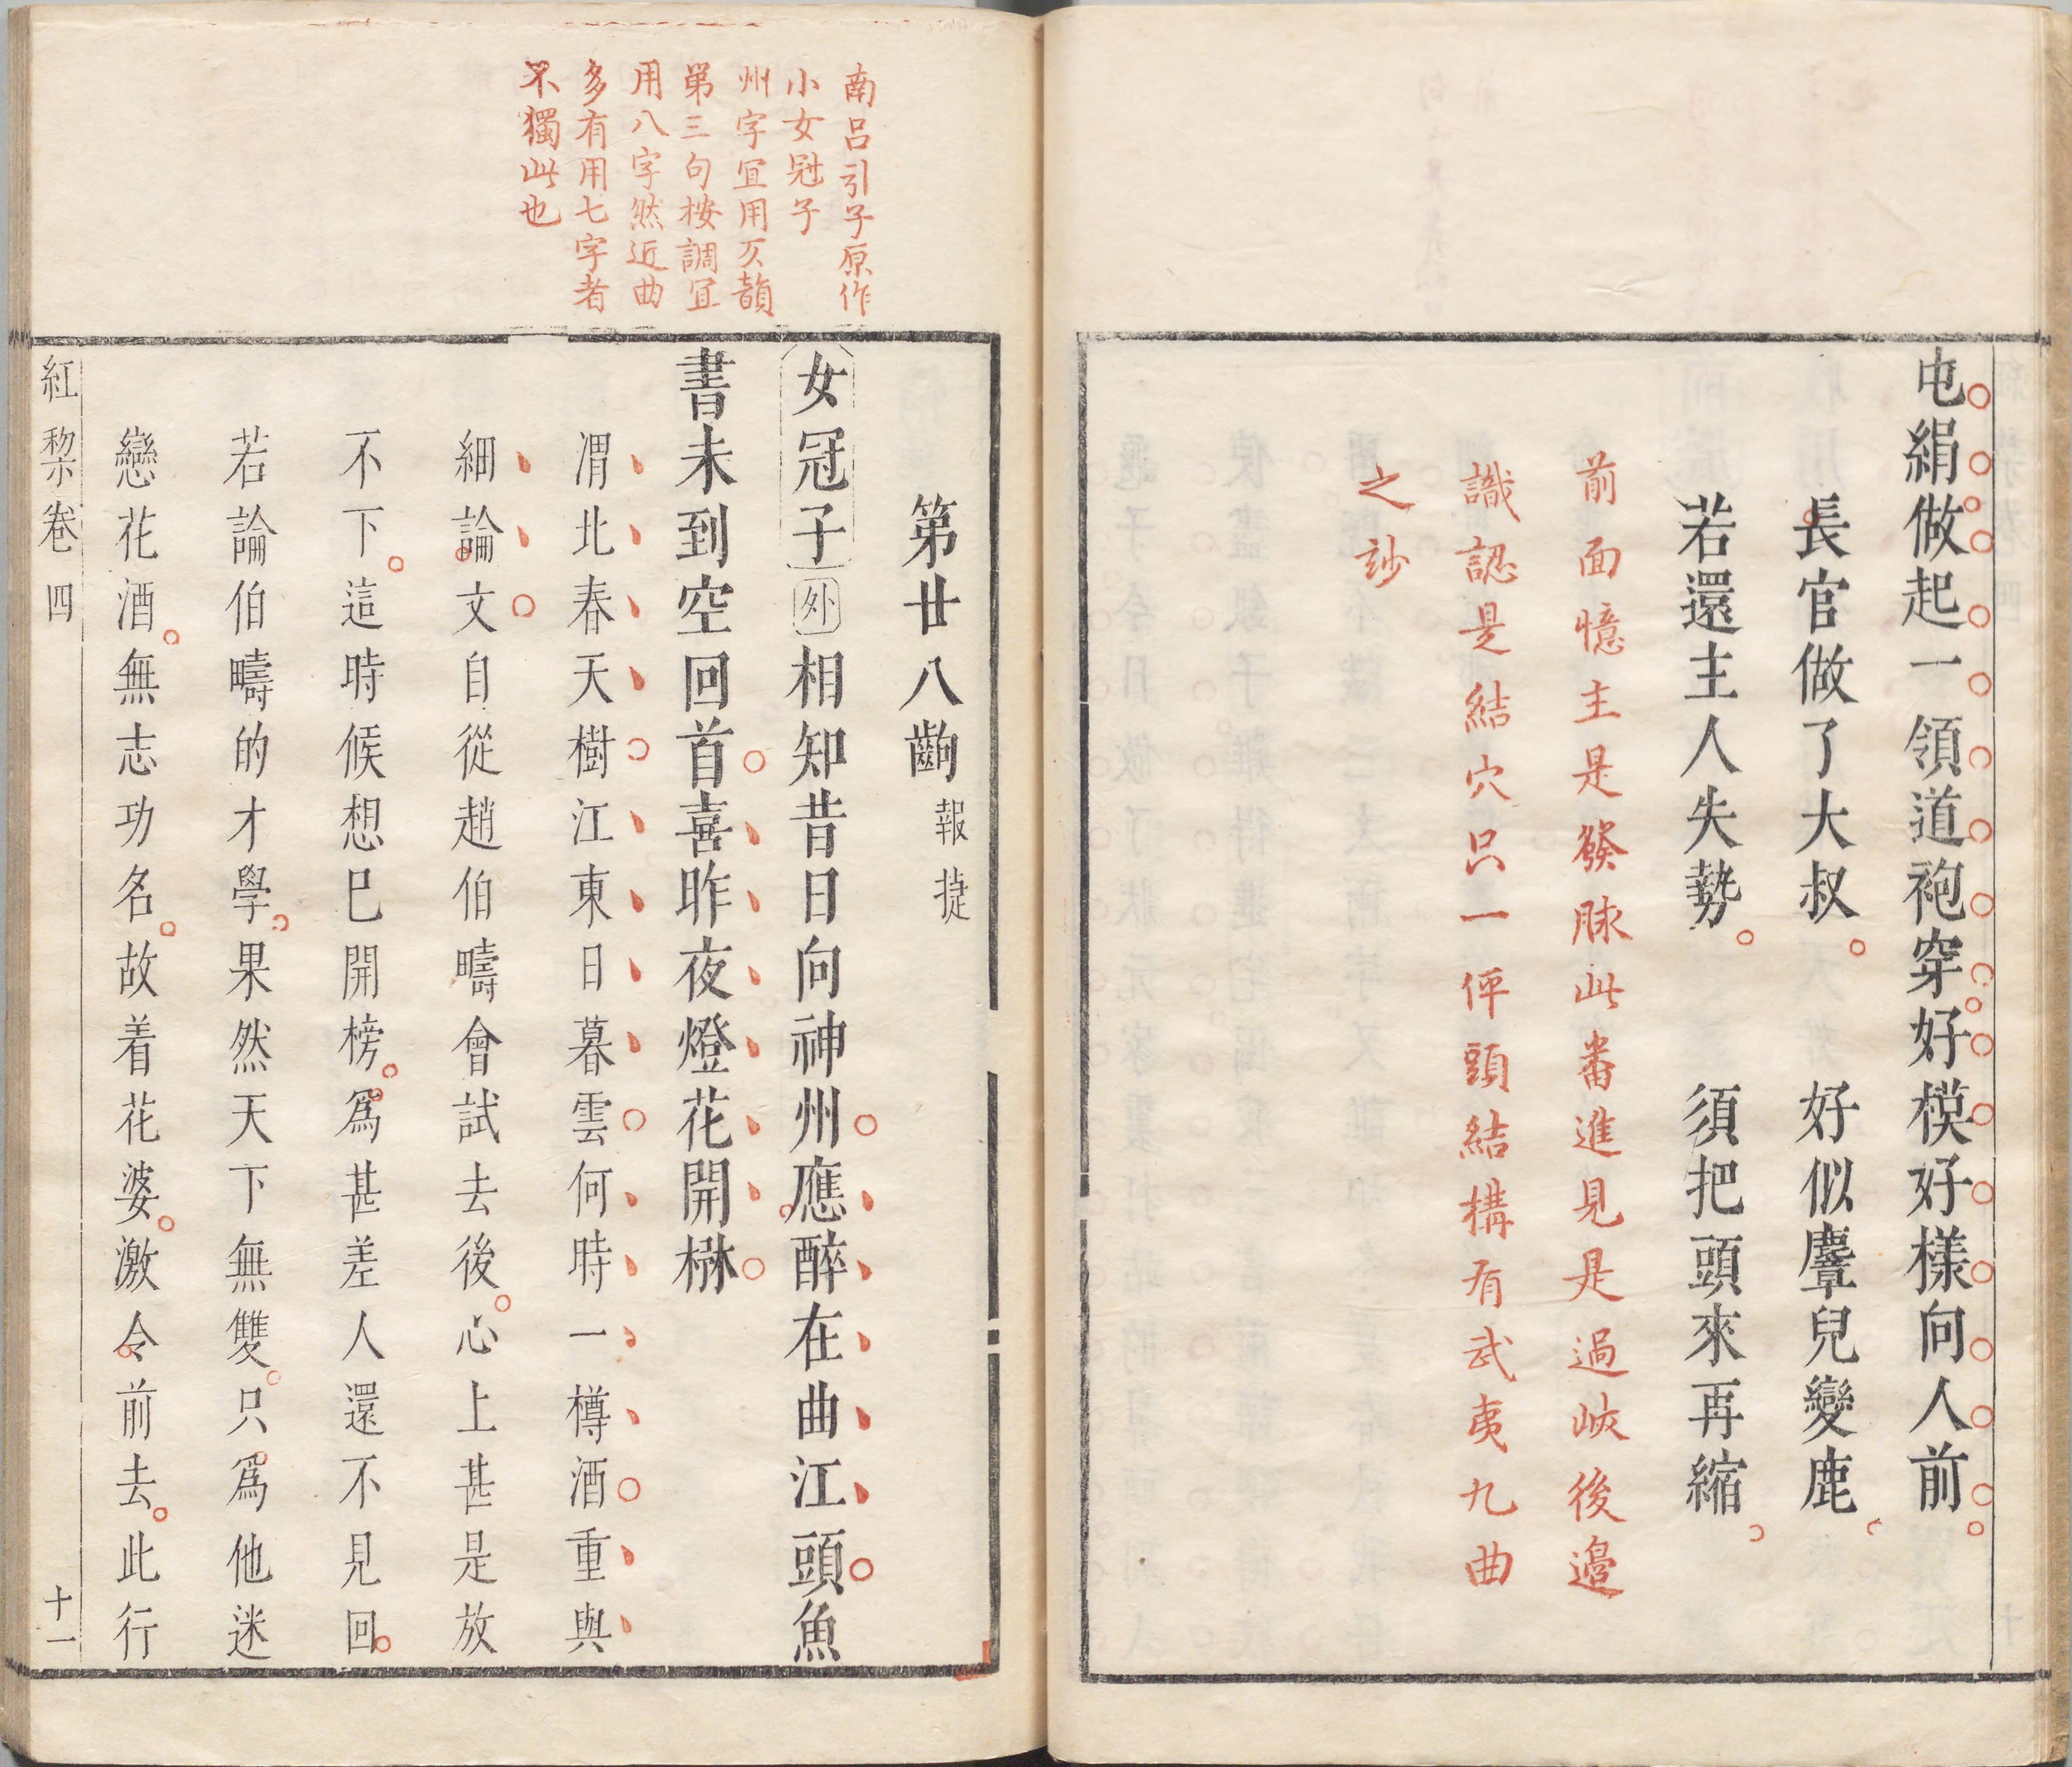 屯絹做起一領道袍穿好模好樣向人前
長官做了大叔　好似麞兒變鹿
若還主人失勢　須把頭來再縮
前面憶主是發脉此番進見是過峽後邉
識認是結穴只一伻頭結構有武夷九曲
之玅
南呂引子原作
小女冠子
州字宜用仄韻
第三句桉調宜
用八字然近曲
多有用七字者
不獨此也
第廿八齣 報捷
女冠子 外 相知昔日向神州應醉在曲江頭魚
書未到空回首喜昨夜燈花開㮋
渭北春天樹江東日暮雲何時一樽酒重與
細論文自從趙伯疇會試去後心上甚是放
不下這時候想巳開榜爲甚差人還不見回
若論伯疇的才學果然天下無雙只爲他迷
戀花酒無志功名故着花婆激令前去此行
紅梨卷四 十一